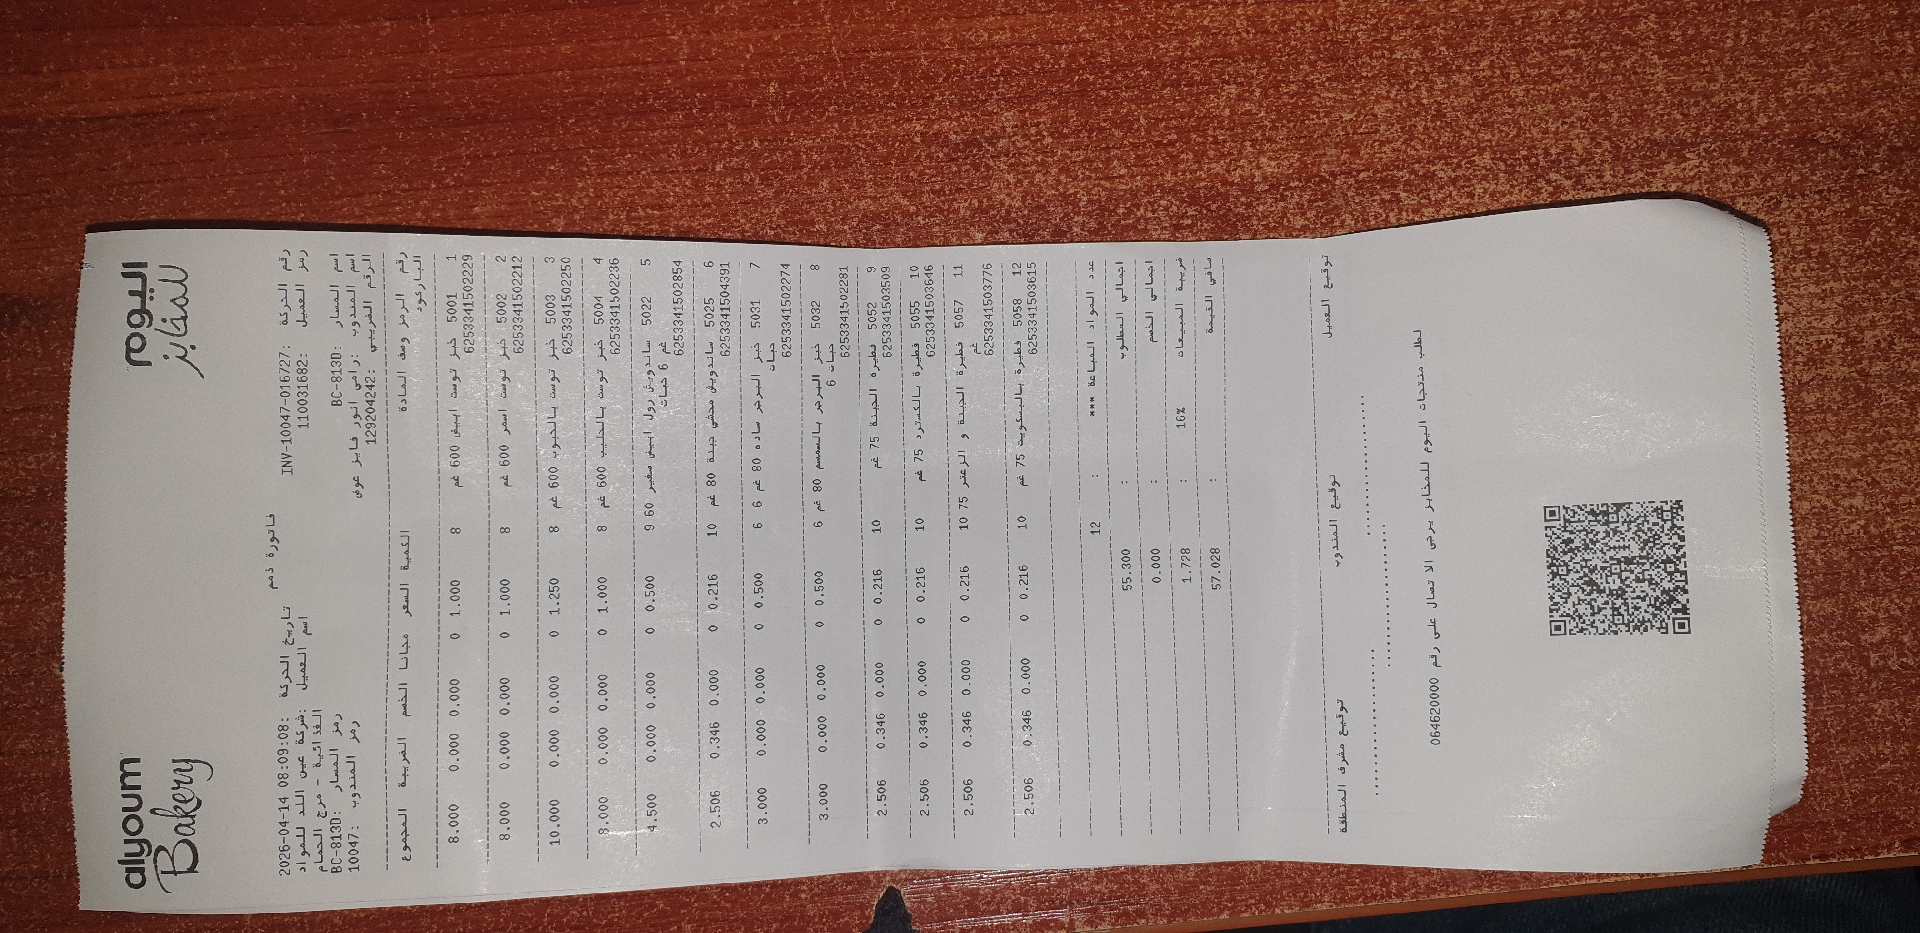 alyoum
Bakery
اليوم
للمخابز
فاتورة ذمم
رقم الحركة :INV-10047-016727 تاريخ الحركة :2026-04-14 08:09:08
رمز العميل :110031682 اسم العميل :شركة عين اللد للمواد
الغذائية - مرج الحمام
اسم المسار :BC-813D رمز المسار :BC-813D
اسم المندوب :رامي انور فايز عوض رمز المندوب :10047
الرقم الضريبي :129204242
رقم الرمز وصف المادة الكمية السعر مجانا الخصم الضريبة المجموع
الباركود
1 5001 خبز توست ابيض 600 غم 8 1.000 0 0.000 0.000 8.000
6253341502229
2 5002 خبز توست اسمر 600 غم 8 1.000 0 0.000 0.000 8.000
6253341502212
3 5003 خبز توست بالحبوب 600 غم 8 1.250 0 0.000 0.000 10.000
6253341502250
4 5004 خبز توست بالحليب 600 غم 8 1.000 0 0.000 0.000 8.000
6253341502236
5 5022 ساندويش رول ابيض صغير 60 9 0.500 0 0.000 0.000 4.500
غم 6 حبات
6253341502854
6 5025 ساندويش محشي جبنة 80 غم 10 0.216 0 0.000 0.346 2.506
6253341504391
7 5031 خبز البرجر ساده 80 غم 6 6 0.500 0 0.000 0.000 3.000
حبات
6253341502274
8 5032 خبز البرجر بالسمسم 80 غم 6 0.500 0 0.000 0.000 3.000
6 حبات
6253341502281
9 5052 فطيرة الجبنة 75 غم 10 0.216 0 0.000 0.346 2.506
6253341503509
10 5055 فطيرة بالكسترد 75 غم 10 0.216 0 0.000 0.346 2.506
6253341503646
11 5057 فطيرة الجبنة و الزعتر 75 10 0.216 0 0.000 0.346 2.506
غم
6253341503776
12 5058 فطيرة بالبسكويت 75 غم 10 0.216 0 0.000 0.346 2.506
6253341503615
عدد المواد المباعة *** : 12
اجمالي المطلوب : 55.300
اجمالي الخصم : 0.000
ضريبة المبيعات 16% : 1.728
صافي القيمة : 57.028
توقيع العميل توقيع المندوب توقيع مشرف المنطقة
لطلب منتجات اليوم للمخابز يرجى الاتصال على رقم 064620000